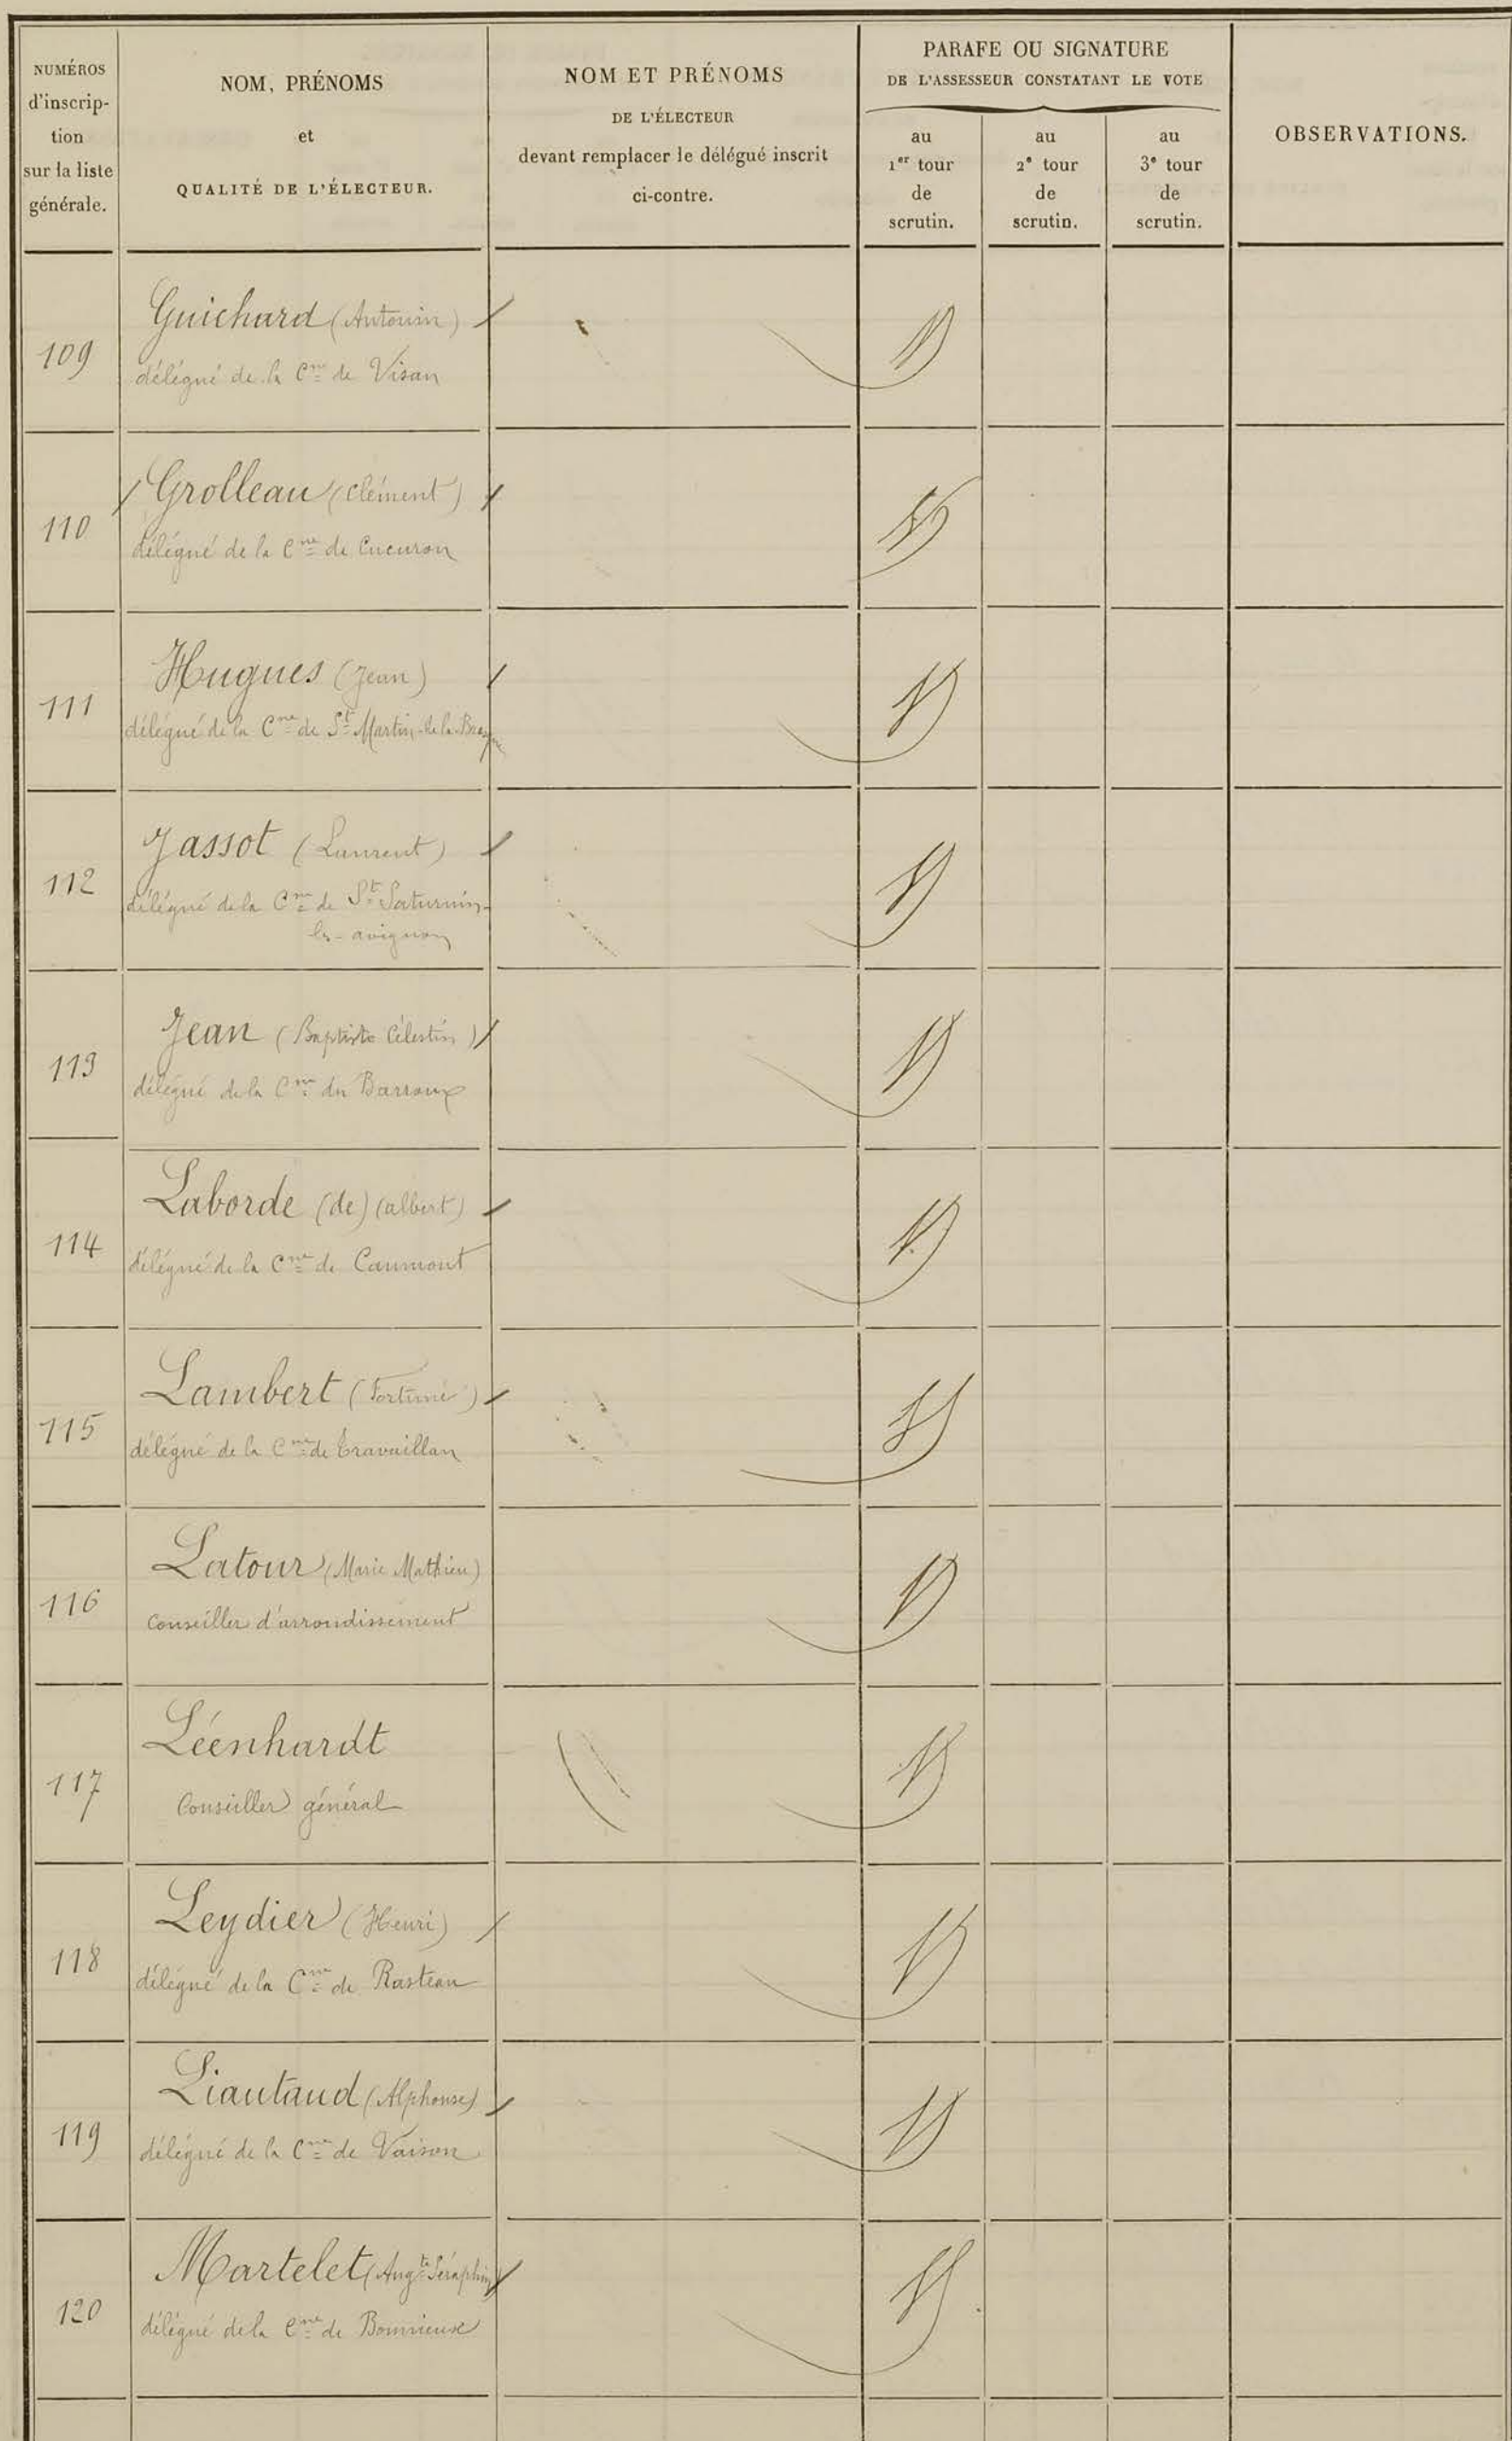 NUMÉROS
d'inscrip-
tion
sur la liste
générale.
NOM, PRÉNOMS
et
QUALITÉ DE L'ÉLECTEUR.
NOM ET PRÉNOMS
DE L'ÉLECTEUR
devant remplacer le délégué inscrit
ci-contre.
PARAFE OU SIGNATURE
DE L'ASSESSEUR CONSTATANT LE VOTE
au
1er tour
de
scrutin.
au
2e tour
de
scrutin.
au
3e tour
de
scrutin.
OBSERVATIONS.
109
Guichard (Antonin)
délégué de la Cne de Visan
110
Grolleau (Clément)
délégué de la Cne de Cucuron
111
Hugues (Jean)
délégué de la Cne de St Martin-de-la-Brasque
112
Jassot (Laurent)
délégué de la Cne de St Saturnin-
les-avignon
113
Jean (Baptiste Célestin)
délégué de la Cne du Barroux
114
Laborde (de) (albert)
délégué de la Cne de Caumont
115
Lambert (Fortuné)
délégué de la Cne de Travaillan
116
Latour (Marie Mathieu)
Conseiller d'arrondissement
117
Léenhardt
Conseiller général
118
Leydier (Henri)
délégué de la Cne de Rasteau
119
Liautaud (Alphonse)
délégué de la Cne de Vaison
120
Martelet (Augte Séraphin)
délégué de la Cne de Bonnieux